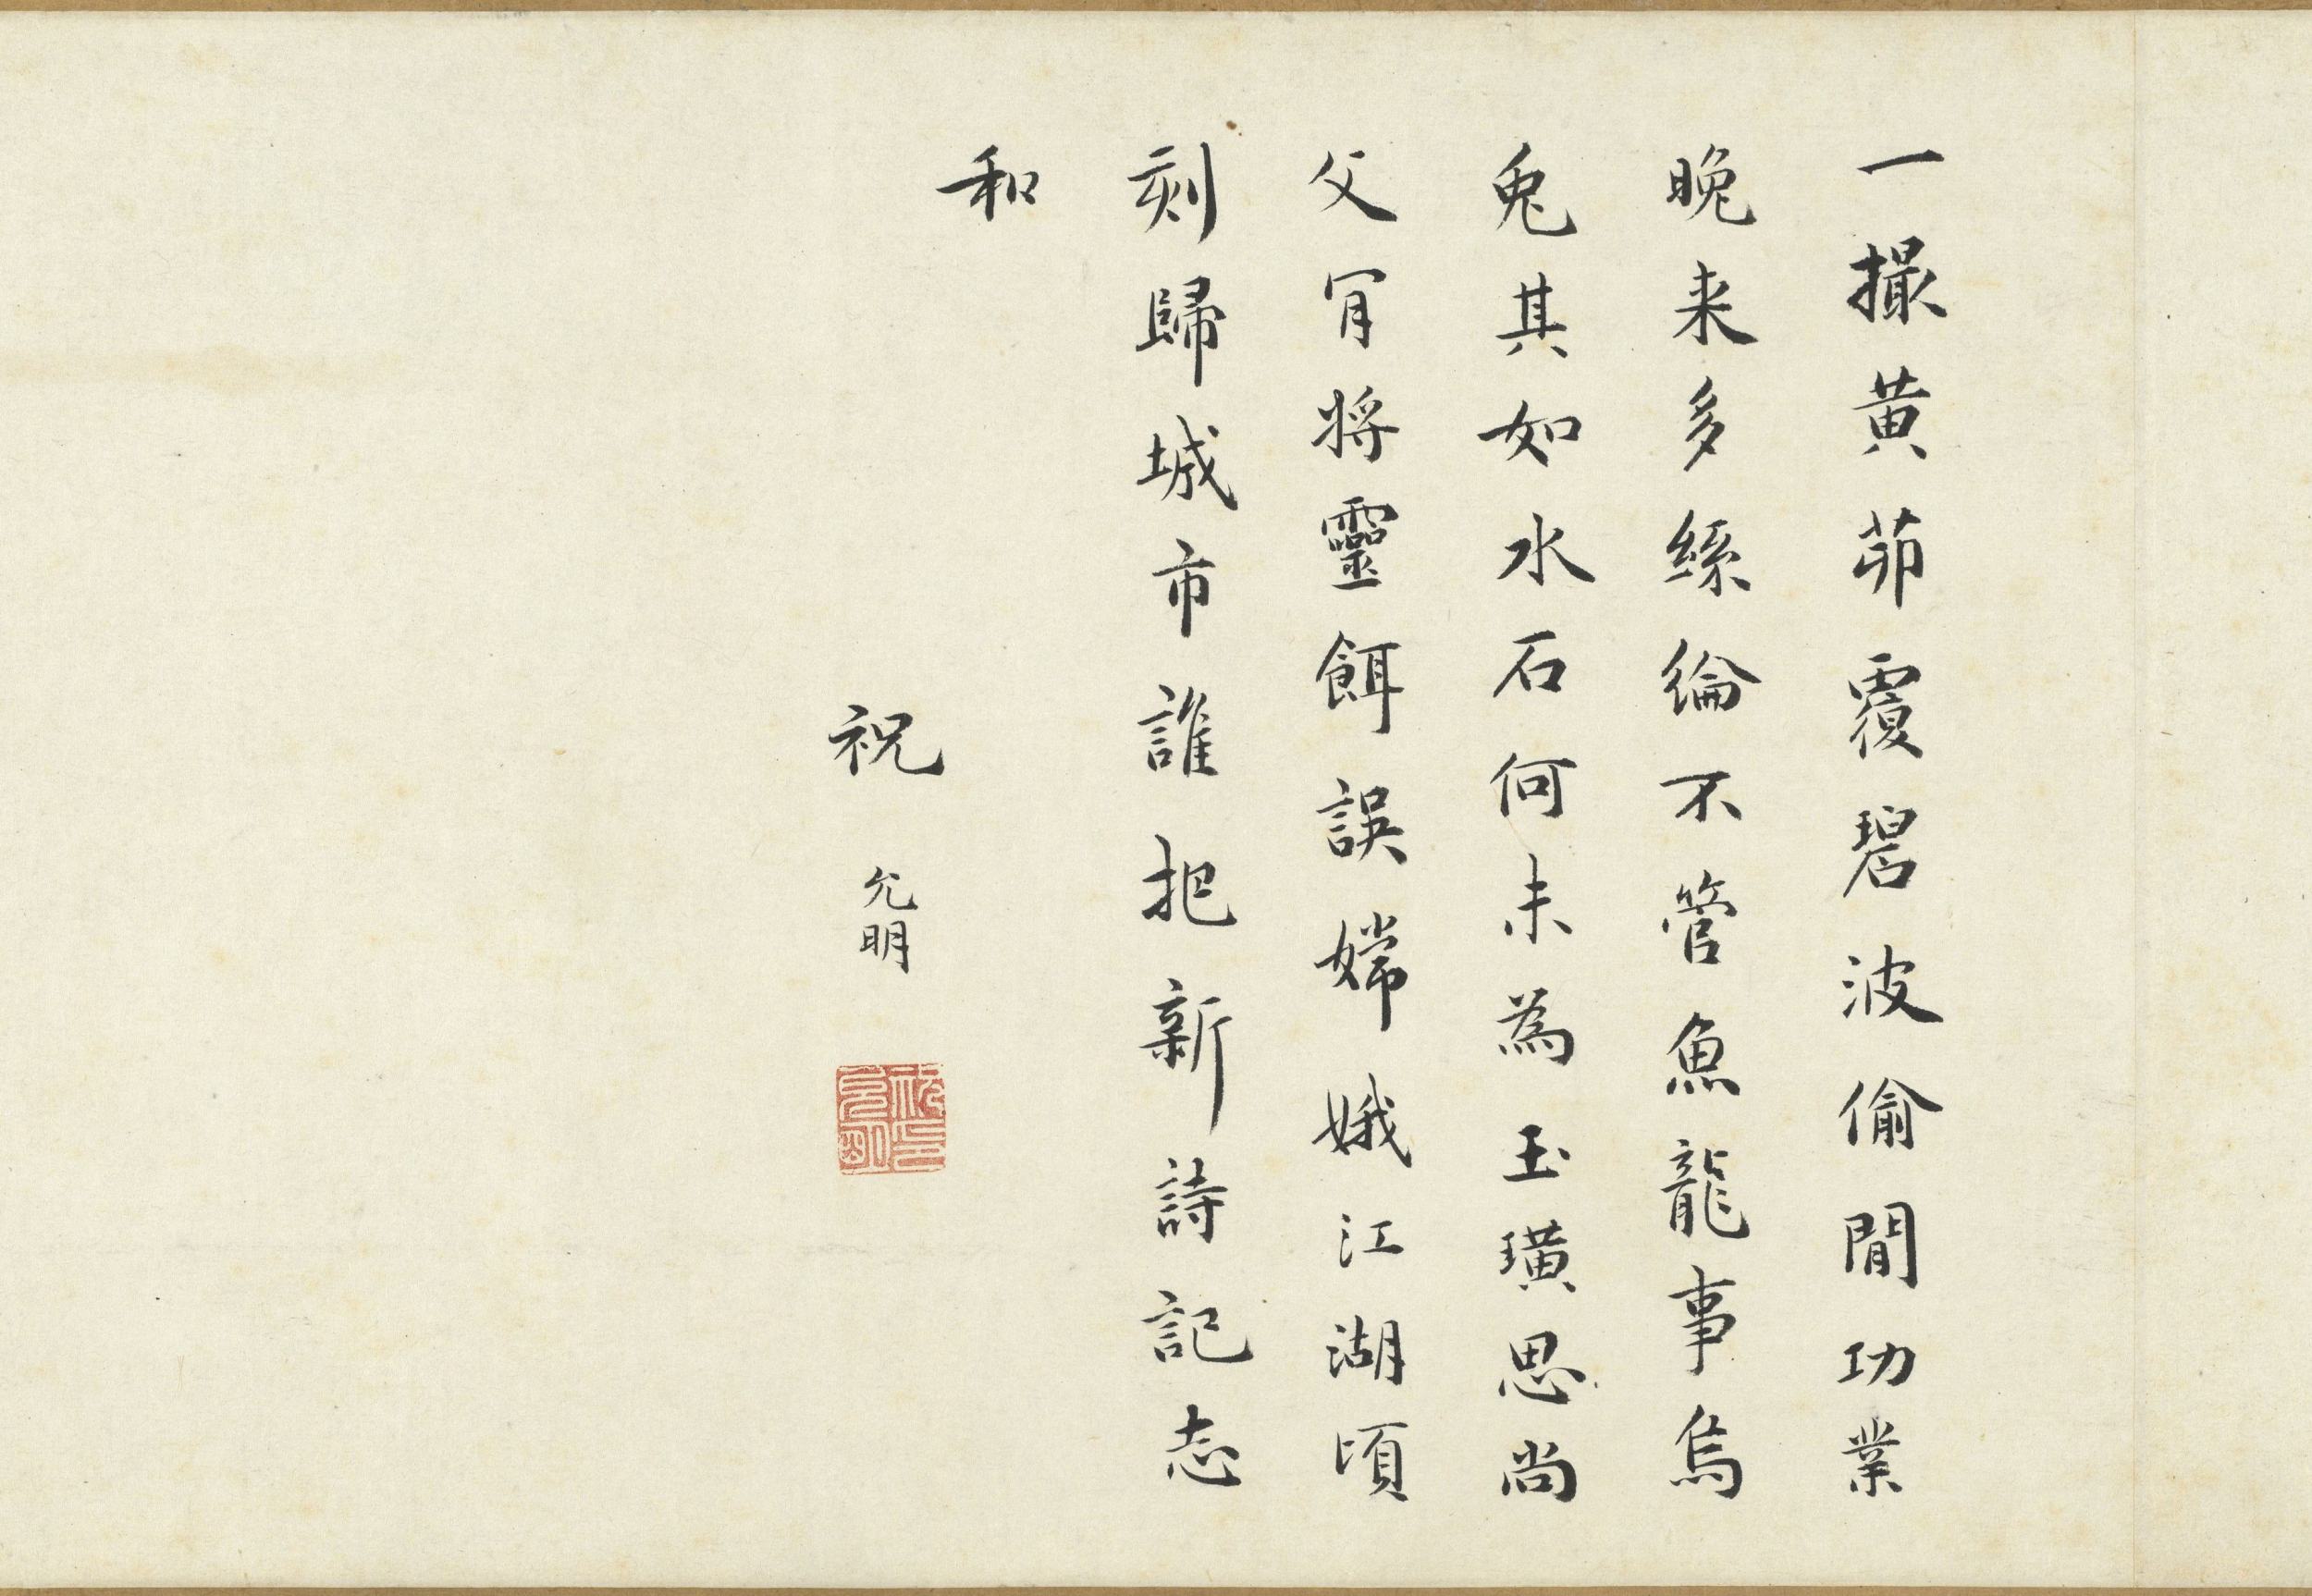 一撮黄茆覆碧波偷閒功業
晚来多絲綸不管魚龍事烏
兔其如水石何未為玉璜思尚
父肎將靈餌誤嫦娥江湖頃
刻歸城市誰把新詩記志
和
祝允明
祝允明印